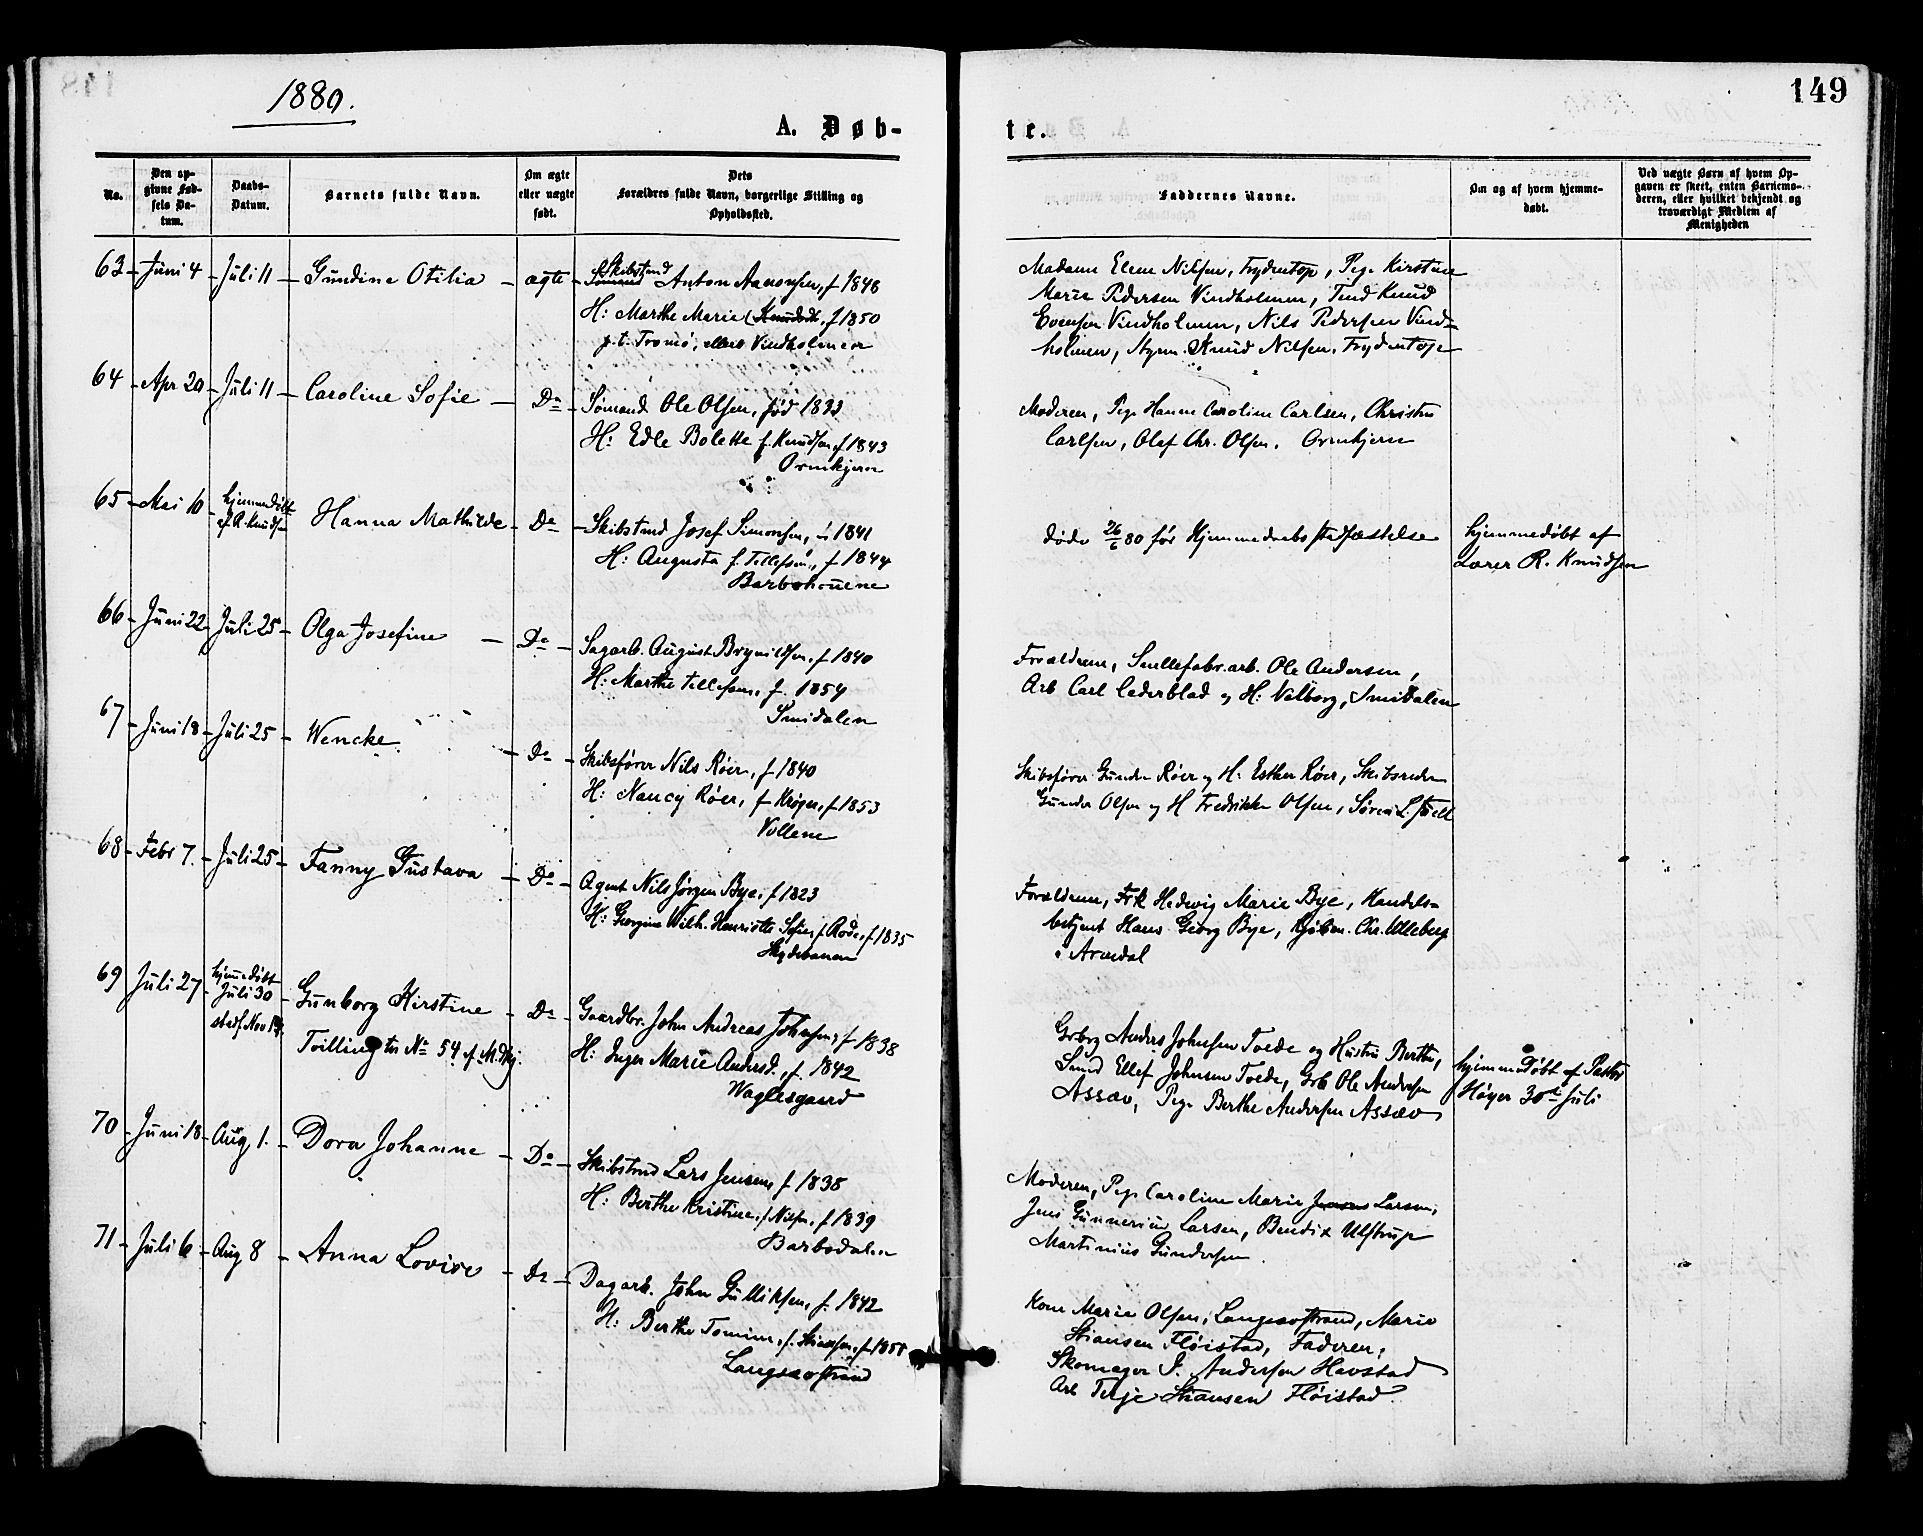 1880.
149
A. Døb-
te.
No.
Den op-
givne Fød-
sels Da-
tum.
Daabs-
Datum.
Barnets fulde Navn.
Om ægte
eller uægte
født.
Dets
Forældres fulde Navn, borgerlige Stilling og
Opholdssted.
Faddernes Navne.
Om og af hvem hjemme-
døbt.
Ved uægte Børn af hvem Op-
gaven er skeet, enten Barnemo-
deren, eller hvilket bekjendt og
troværdigt Medlem af
Menigheden
63 - Juni 4 - Juli 11 - Gundine Otilia - ægte -
Skibstmd
Sømand Anton Aanonsen, f 1848
H: Marthe Marie Knudsdt. f 1850
p.t. Tromø, ellers Vindholmen
Madame Elene Nilsen, Frydentop, Pige Kirstine
Marie Pedersen Vindholmen, Tmd Knud
Evensen Vindholmen, Nils Pedersen Vind-
holmen, Styrm. Knud Nilsen, Frydentop
64 - Apr 20 - Juli 11 - Caroline Sofie - Do -
Sømand Ole Olsen, fød 1833
H: Edle Bolette f. Knudsen, f 1843
Ormkjern
Moderen, Pige Hanne Caroline Carlsen, Christen
Carlsen, Olaf Chr. Olsen. Ormkjern
65 - Mai 16 - hjemmedøbt
af R. Knudsen
Hanna Mathilde - Do
- Skibstmd Josef Simonsen, f. 1841
H: Augusta f. Tellefsen, f 1844
Barbohouene
døde 26/6 80 før Hjemmedaabs stadfæstelse
hjemmedøbt af
Lærer R. Knudsen
66 - Juni 22 - Juli 25 - Olga Josefine - Do -
Sagarb. August Brynildsen, f 1840
H: Marthe Tellefsen, f. 1854
Smidalen
Forældrene, Snellefabr. arb. Ole Andersen,
Arb Carl Cederblad og H: Valborg, Smidalen
67 - Juni 18 - Juli 25 - Wencke. - Do -
Skibsfører Nils Røer, f 1840
H: Nancy Røer, f Krøger, f 1853
Vollene
Skibsfører Gunder Røer og H: Esther Røer, Skibsreder
Gunder Olsen og H Fredrikke Olsen, Søren L.
68 - Febr 7. - Juli 25 - Fanny Gustava - Do -
Agent Nils Jørgen Bye, f 1823
H: Georgine Wilh. Henriette Sofie, f. Rode, f 1835
Skydebanen
Forældrene, Frk Hedevig Marie Bye, Handels-
betjent Hans Georg Bye, Kjøbm. Chr. Ulleberg
i Arendal
69 Juli 27 - hjemmedøbt
Juli 30
stadf Nov 14. - Gunborg Kirstine - Do -
Tvilling til No 54 af M.Kj.
Gaardbr. John Andreas Johnsen, f 1838
H: Inger Marie Andersd., f. 1842
Waglesgaard
Grbrg Anders Johnsen Tvede og Hustru Berthe,
Smed Ellef Johnsen Tvede, Grb Ole Andersen
Assæv, Pige Berthe Andersen Assæv
hjemmedøbt af Pastor
Høyer 30te Juli
70 - Juni 18 - Aug 1. - Dora Johanne - Do -
Skibstmd Lars Jensen, f 1838
H: Berthe Kristine, f Nilsen, f 1839
Barbodalen
Moderen, Pige Caroline Marie Jensen Larsen,
Jens Gunnerius Larsen, Bendix Ulstrup
Martinius Gundersen
71 - Juli 6 - Aug 8 - Anna Lovise - Do -
Dagarb. John Gulliksen, f. 1842
H: Berthe Tomine, f. Stiansen, f 1851
Langsæstrand
Kone Marie Olsen, Langsæstrand, Marie
Stiansen Fløistad, Faderen,
Skomager J. Andersen Havstad
Arb Terje Stiansen Fløistad.